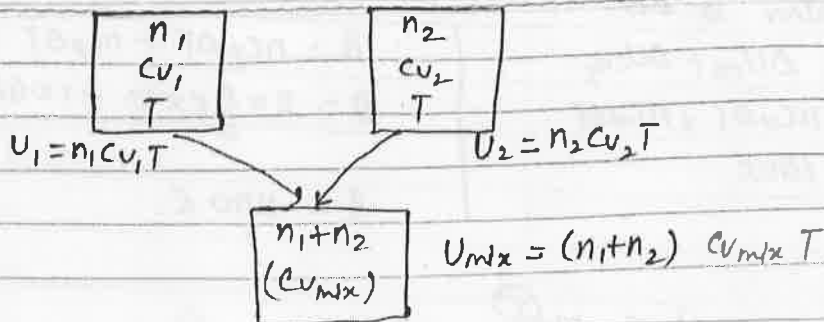 n₁
Cv₁
T
n₂
Cv₂
T
U₁ = n₁ Cv₁ T
U₂ = n₂ Cv₂ T
n₁+n₂
(Cvmix)
Umix = (n₁+n₂) Cvmix T